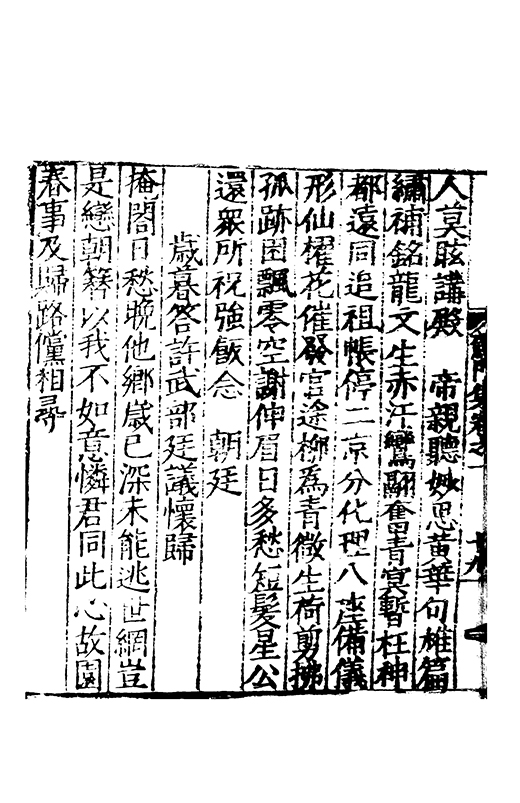 人莫眩講殿　帝親聽妙思黃華句雄篇
繡補銘龍文生赤汗鸞翮奮青冥暫枉神
都遠同追祖帳停二京分化理八座備儀
形仙櫂花催發官途柳為青徵生荷剪拂
孤跡困飄零空謝伸眉日多愁短髮星公
還衆所祝強飯念　朝廷
歲暮答許武部廷議懷歸
掩閣日愁晚他鄉歲已深未能逃世網豈
是戀朝簪以我不如意憐君同此心故園
春事及歸路儻相尋
集卷之一
十九